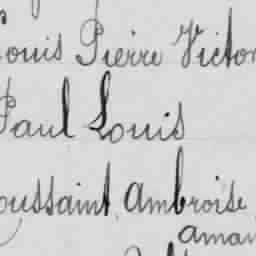 Louis Pierre Victor
Paul Louis
Toussaint Ambroise
aman